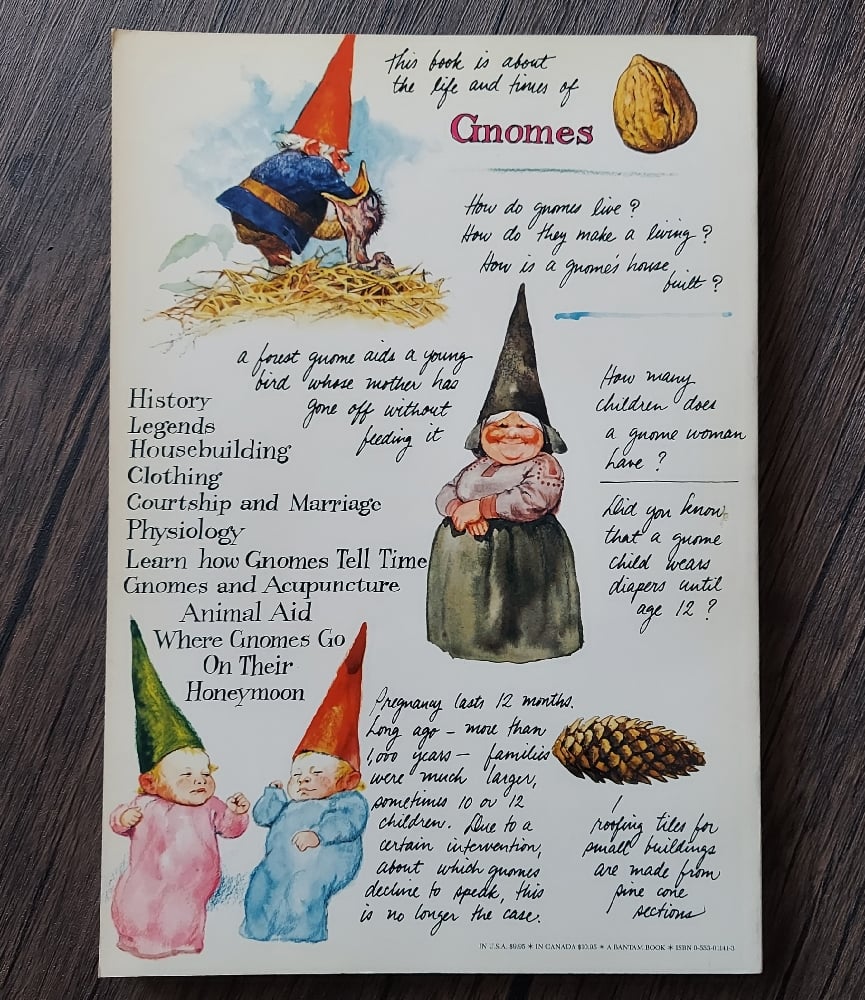 This book is about
the life and times of
Gnomes
How do gnomes live?
How do they make a living?
How is a gnome's house
built?
a forest gnome aids a young
bird whose mother has
gone off without
feeding it
History
Legends
Housebuilding
Clothing
Courtship and Marriage
Physiology
Learn how Gnomes Tell Time
Gnomes and Acupuncture
Animal Aid
Where Gnomes Go
On Their
Honeymoon
How many
children does
a gnome woman
have?
Did you know
that a gnome
child wears
diapers until
age 12?
Pregnancy lasts 12 months.
Long ago – more than
1,000 years – families
were much larger,
sometimes 10 or 12
children. Due to a
certain intervention,
about which gnomes
decline to speak, this
is no longer the case.
roofing tiles for
small buildings
are made from
pine cone
sections
IN U.S.A. $9.95 * IN CANADA $10.95 * A BANTAM BOOK * ISBN 0-553-01141-3